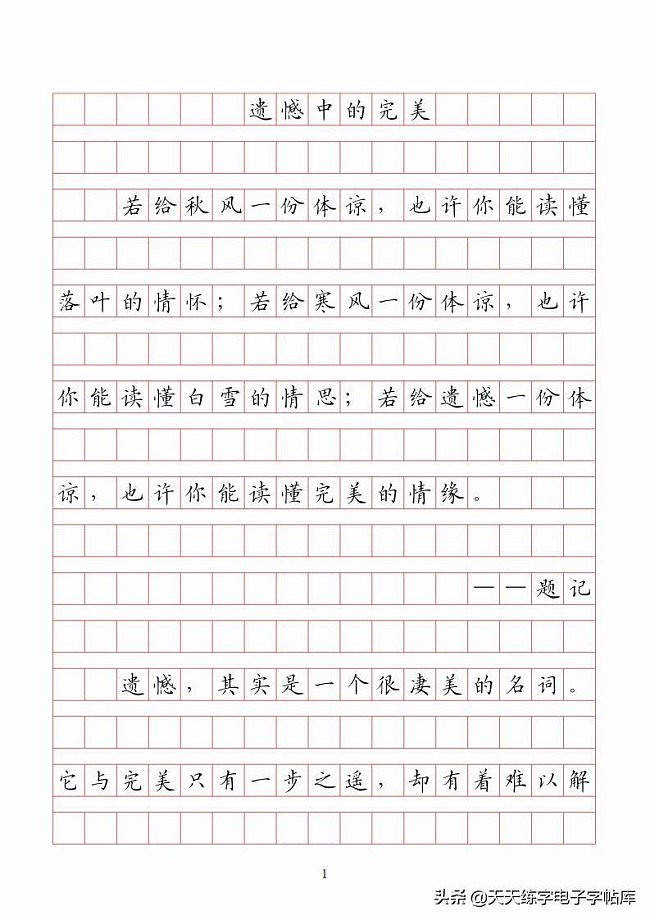 遗憾中的完美
若给秋风一份体谅，也许你能读懂
落叶的情怀；若给寒风一份体谅，也许
你能读懂白雪的情思；若给遗憾一份体
谅，也许你能读懂完美的情缘。
——题记
遗憾，其实是一个很凄美的名词。
它与完美只有一步之遥，却有着难以解
1
头条@天天练字电子字帖库